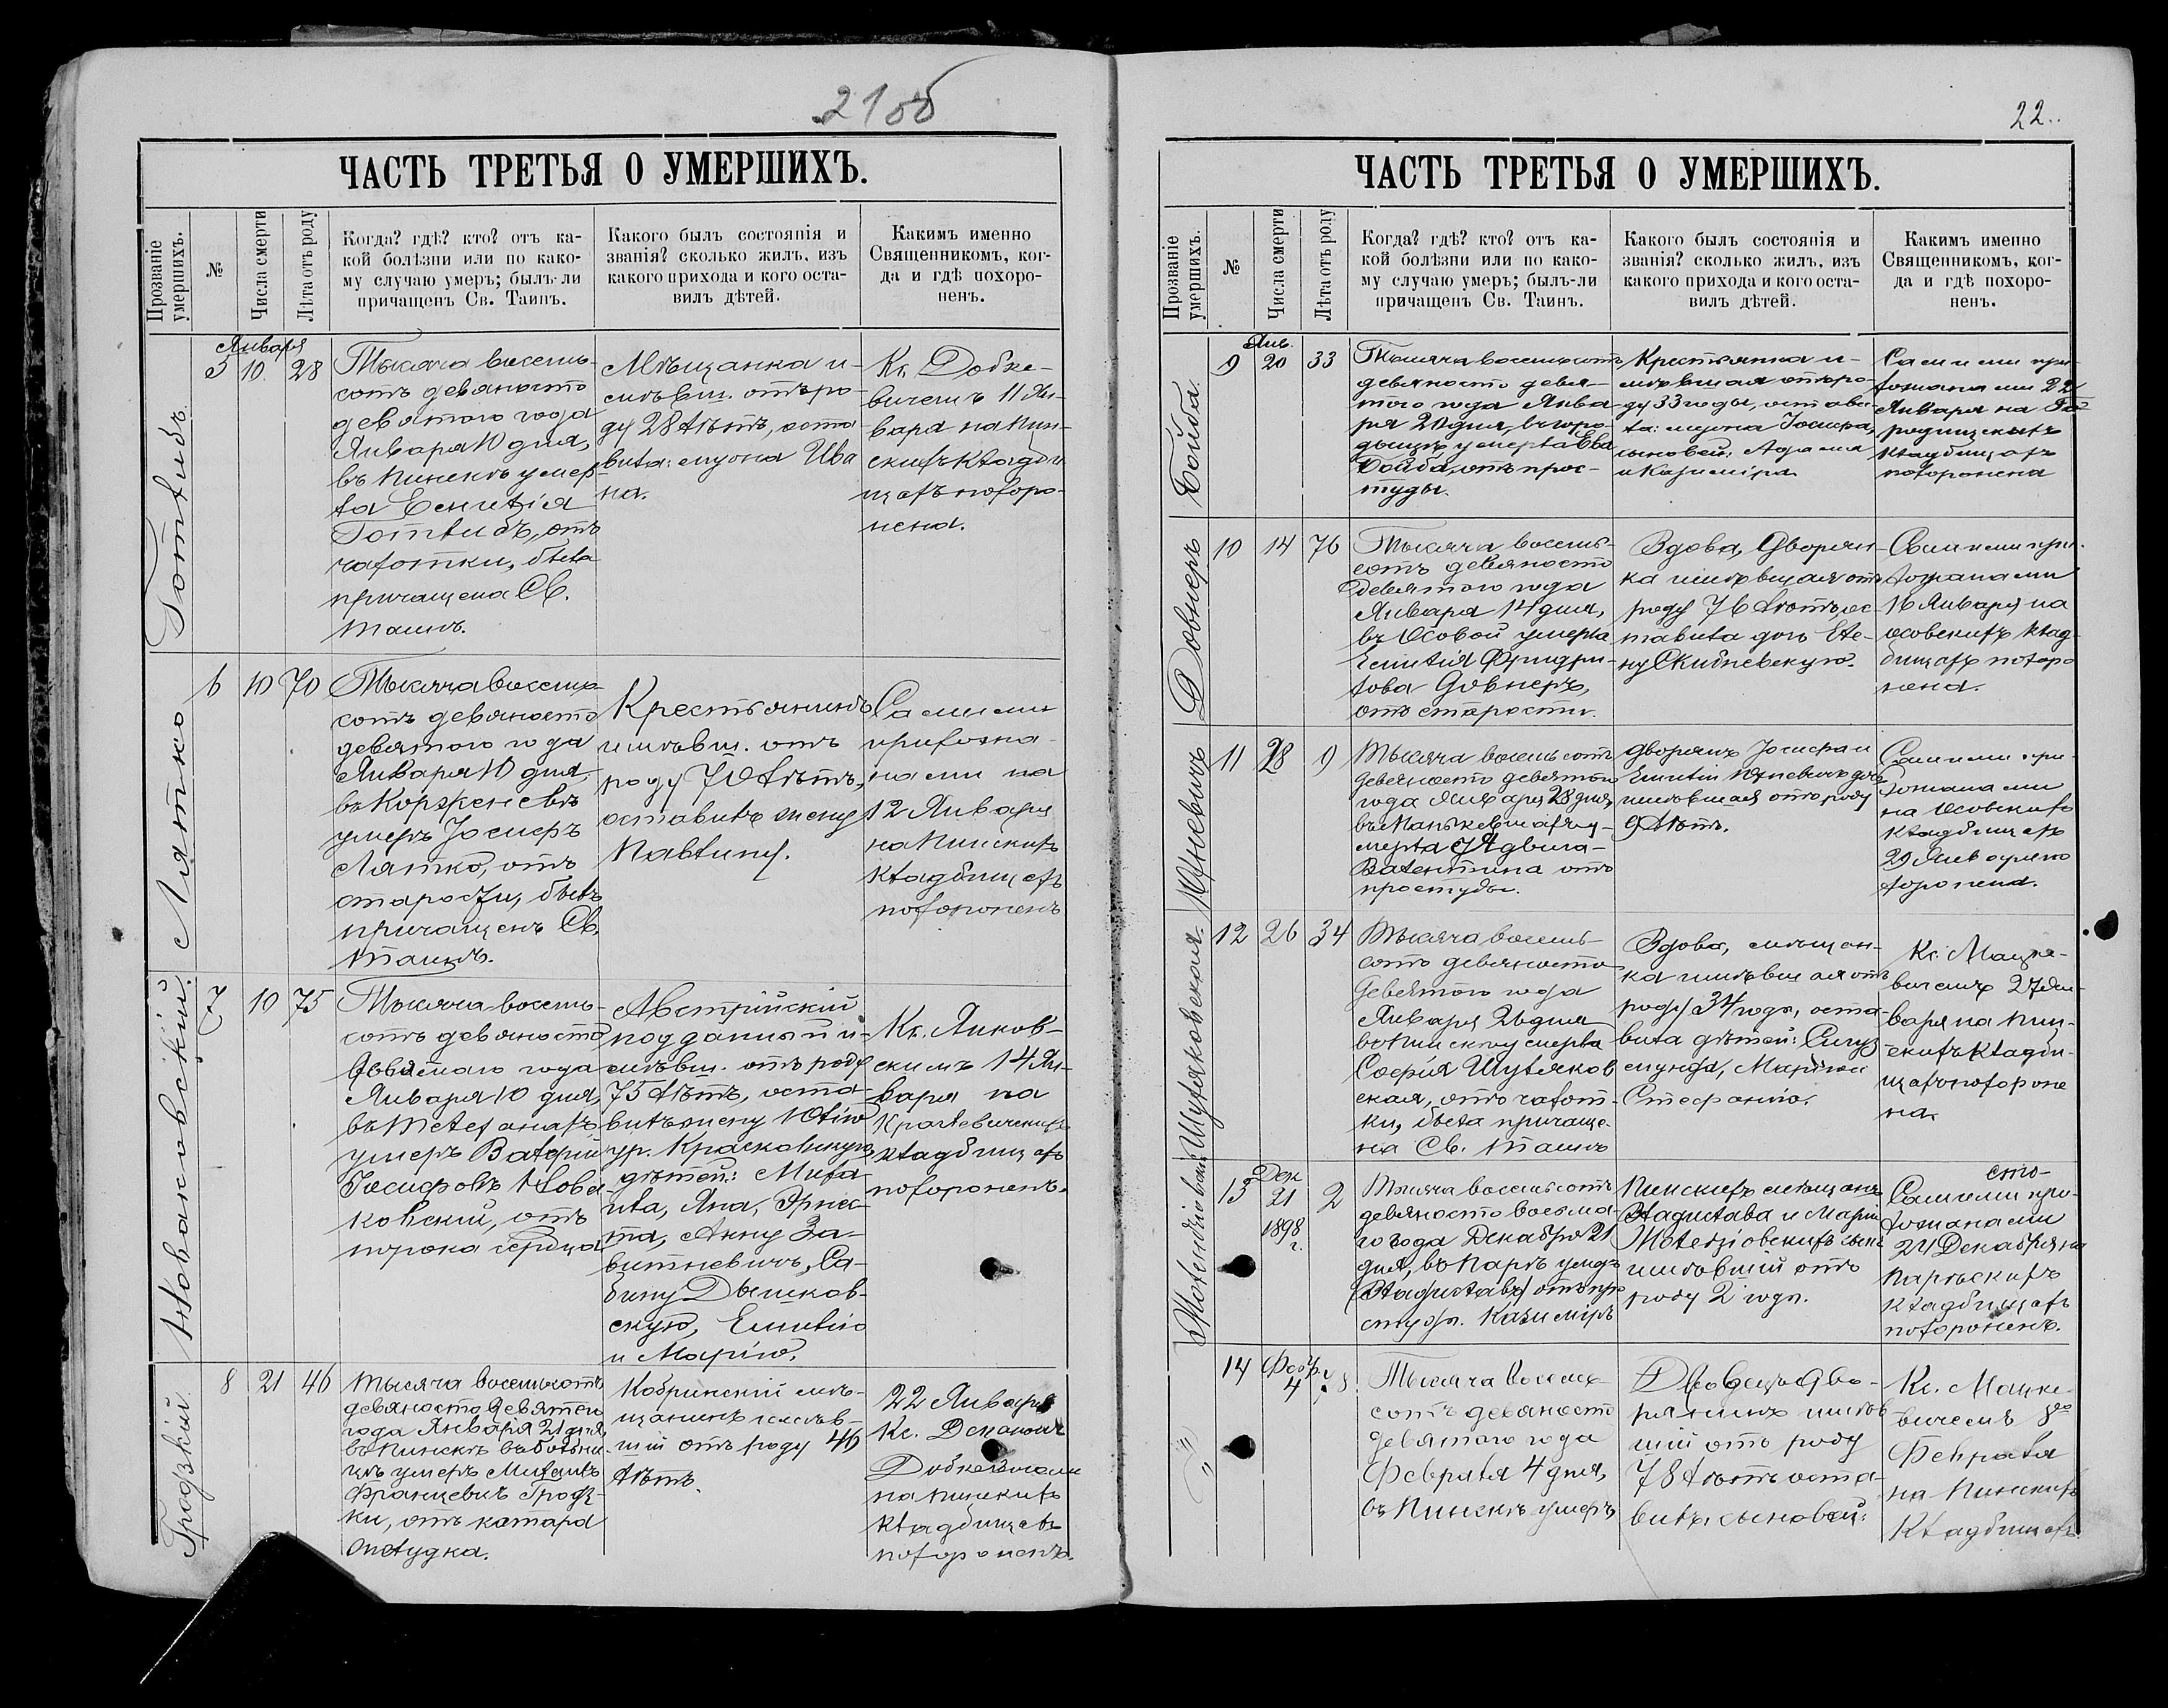 21об
ЧАСТЬ ТРЕТЬЯ О УМЕРШИХЪ.
Прозваніе умершихъ.
№
Числа смерти
Лѣта отъ роду
Когда? гдѣ? кто? отъ ка-
кой болѣзни или по како-
му случаю умеръ; былъ-ли
причащенъ Св. Таинъ.
Какого былъ состоянія и
званія? сколько жилъ, изъ
какого прихода и кого оста-
вилъ дѣтей.
Какимъ именно
Священникомъ, ког-
да и гдѣ похоро-
ненъ.
Готлибъ
Января
5 10. 28
Тысяча восемь-
сотъ девяносто
девятого года
Января 10 дня,
въ Пинскѣ умер-
ла Емилія
Готлибъ, отъ
чахотки, была
причащена Св.
Таинъ.
Мѣщанка и-
мѣвш. отъ ро-
ду 28 лѣтъ, оста
вила: мужа Ива
на.
Кс. Добке-
вичемъ 11 Ян-
варя на Пин-
скихъ кладби
щахъ похоро-
нена.
Лятко
6 10 70
Тысяча восемь
сотъ девяносто
девятого года
Января 10 дня,
въ Корженевѣ
умеръ Іосифъ
Лятко, отъ
старости, былъ
причащенъ Св.
Таинъ.
Крестьянинъ
имѣвш. отъ
роду 70 лѣтъ,
оставилъ жену
Павлину.
Самими
прихожа-
нами на
12 Января
на Пинскихъ
кладбищахъ
похороненъ
Новаковскій.
7 10 75
Тысяча восемь-
сотъ девяносто
девятого года
Января 10 дня,
умеръ Валерій
Іосифовъ Нова
ковскій, отъ
порока сердца
Австрійскій
подданый и-
мѣвш. отъ роду
75 лѣтъ, оста-
вилъ жену Юлію
ур. Красковскую
дѣтей: Миха-
ила, Яна, Эрнес-
та, Анну За-
витневичъ, Са-
бину Дымков-
скую, Емилію
и Марію.
Кс. Янков-
скимъ 14 Ян-
варя на
кладбищахъ
похороненъ.
Гродзкій
8 21 46
Тысяча восемьсотъ
девяносто девятого
года Января 21 дня,
въ Пинскѣ въ больни
цѣ умеръ Михаилъ
Францевичъ Гродз-
ки, отъ катара
желудка.
Кобринскій мѣ-
щанинъ имѣв-
шій отъ роду 46
лѣтъ.
22 Января
Кс. Деканомъ
Добкевичемъ
на Пинскихъ
кладбищахъ
похороненъ.
22.
ЧАСТЬ ТРЕТЬЯ О УМЕРШИХЪ.
Прозваніе умершихъ.
№
Числа смерти
Лѣта отъ роду
Когда? гдѣ? кто? отъ ка-
кой болѣзни или по како-
му случаю умеръ; былъ-ли
причащенъ Св. Таинъ.
Какого былъ состоянія и
званія? сколько жилъ, изъ
какого прихода и кого оста-
вилъ дѣтей.
Какимъ именно
Священникомъ, ког-
да и гдѣ похоро-
ненъ.
Бойба.
Янв.
9 20 33
Тысяча восемьсотъ
девяносто девя-
того года Янва-
ря 20 дня, въ Горо-
дищѣ умерла Ева
Бойба, отъ прос-
туды.
Крестьянка и-
мѣвшая отъ ро-
ду 33 годы, остави-
ла: мужа Іосифа,
сыновей: Адама
и Казиміра
Самими при-
хожанами 22
Января на Го-
родищскихъ
кладбищахъ
похоронена
Довнеръ
10 14 76
Тысяча восемь-
сотъ девяносто
девятого года
Января 14 дня,
въ Особой умерла
Емилія Фридри-
хова Довнеръ,
отъ старости.
Вдова, Дворян-
ка имѣвшая отъ
роду 76 лѣтъ, ос-
тавила дочь Еле-
ну Скибневскую.
Самими при-
хожанами
16 Января на
Особскихъ клад-
бищахъ похоро
нена.
Юневичъ
11 28 9
Тысяча восемьсотъ
девяносто девятого
года Января 28 дня,
умерла Ядвига-
Валентина отъ
простуды.
Дворянъ Іосифа и
Емиліи Юневичъ дочь
имѣвшая отъ роду
9 лѣтъ.
Самими при-
хожанами
на Особскихъ
кладбищахъ
29 Января по
хоронена.
12 26 34
Тысяча восемь-
сотъ девяносто
девятого года
Января 26 дня
въ Пинскѣ умерла
Софія Шуляков
ская, отъ чахот-
ки, была причаще-
на Св. Таинъ
Вдова, мѣщан-
ка имѣвшая отъ
роду 34 года, оста-
вила дѣтей: Сигиз
мунда, Марію и
Стефанію.
Кс. Мацке-
вичемъ 27 Ян-
варя на Пин-
скихъ кладби-
щахъ похороне
на.
Дек
13 21 2
1898
г.
Тысяча восемьсотъ
девяносто восьма-
го года Декабря 21
Казиміръ
Пинскихъ мѣщанъ
имѣвшій отъ
роду 2 года.
Самими при-
хожанами
24 Декабря на
кладбищахъ
похороненъ.
14 Февр.
4
Тысяча восемь-
сотъ девяносто
девятого года
Февраля 4 дня,
въ Пинскѣ умеръ
Вдовецъ Дво-
рянинъ имѣв
шій отъ роду
78 лѣтъ оста-
вилъ сыновей:
Кс. Мацке-
вичемъ 8го
Февраля
на Пинскихъ
кладбищахъ